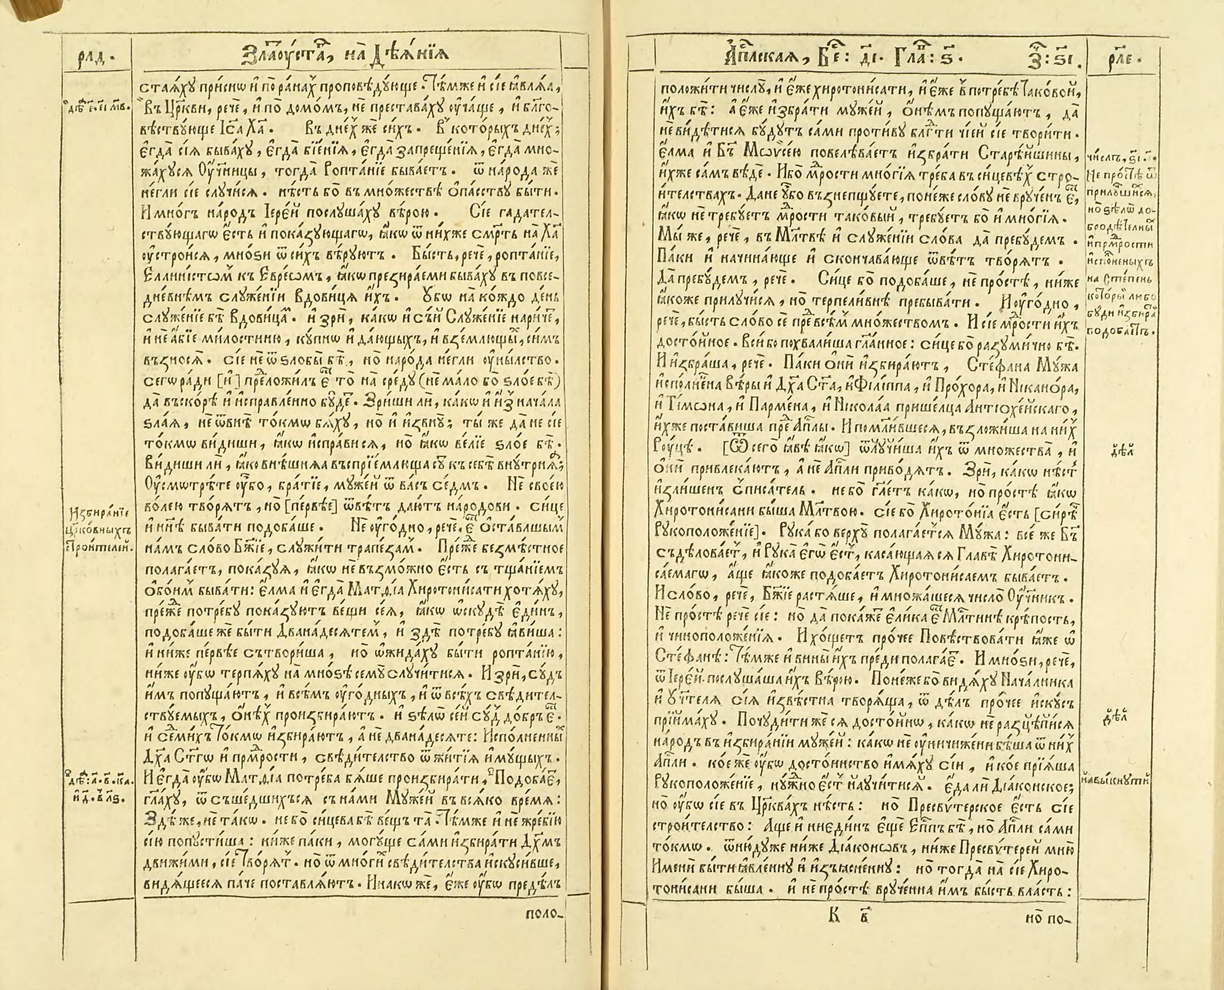 рлд.
Злаоуста, на Дѣянїя
стаяху присни и по ранах проповѣдующе. Тѣмже и сїе являя,
въ Цркви, рече, и по домомъ, не преставаху оучаще, и благо-
вѣствующе Іса Ха. Въ днех же сихъ. В которыхъ днех;
егда сїя бываху, егда бїенїя, егда запрещенїя, егда мно-
жахуся Оученицы, тогда Роптанїе бываетъ. ѿ народа же
негли сїе случися. нѣсть бо въ множествѣ опаству быти.
И многъ народъ Іереи послушаху вѣрою. Сїе гадател-
ствующагѡ есть и показующагѡ, якѡ ѿ нихже смрть на Ха
оустроися, мнози ѿ сихъ вѣруютъ. Бысть, рече, роптанїе,
Еллинистѡм къ Евреомъ, якѡ презираеми бываху въ повсе-
дневнѣмъ служенїи Вдовица ихъ. Убѡ на кождо день
служенїе бѣ Вдовица. и зри, какѡ и сїи Служенїе нарече,
и не абїе милостиню, купнѡ и дающихъ, и вземлющи, симъ
възнося. сїе не ѿ злобы бѣ, но народа негли оунылство.
сегѡ ради [и] преложилъ е то на среду (не мало бо злое бѣ)
да въскорѣ и исправленно буде. Зриши ли, какѡ и из начала
злая, не ѿвнѣ токмѡ бяху, но и извну; ты же да не сїе
токмѡ видиши, якѡ исправися, но якѡ велїе злое бѣ.
Видиши ли, яко внѣшняя въспрїемлюща су къ себѣ внутрня;
Оусмотрѣте оубо, братїе, мужей ѿ васъ седмъ. Не своею
волею творятъ, но [первѣе] ѿвѣтъ даютъ народови. сице
и ннѣ бывати подобаше. Не оугодно, рече, е оставлшымъ
намъ слово Бжїе, служити трапезам. Преже безмѣстное
полагаетъ, показуя, якѡ не възможно есть съ тщанїемъ
обоим бывати: елма и егда Матѳїа Хиротонисати хотяху,
преже потребу показуютъ вещи сея, якѡ ѡскудѣ единъ,
подобаше же быти Дванадесятем, и здѣ потребу явиша:
и ниже первѣе сътвориша, но ѡжидаху быти роптанїю,
ниже оубѡ терпяху на мнозѣ сему случитися. И зри, судъ
имъ попущаютъ, и всѣм оугодныхъ, и ѿ всѣхъ свѣдител-
ствуемыхъ, онѣх произбираютъ. и зѣлѡ сей суд добръ е.
и семихъ токмѡ избираютъ, а не дванадесяте: Исполненны
Дха Стгѡ и прмрости, свѣдителство ѿ житїя имущыхъ.
И егда оубѡ Матѳїа потреба бяше произбирати, Подобае,
глаху, ѿ съшедшихъся с нами Мужей въ всяко время:
Здѣ же, не такѡ. не бо сицева бѣ вещь та. Тѣмже и не жребїю
сїю попустиша: ниже паки, могуще сами избирати Дхмъ
движими, сїе Творят. но ѿ многи свѣдителства искусивше,
видящееся паче поставляютъ. Инакѡ же, еже оубѡ предѣлъ
поло-
дѣ: е: и мв.
Избиранїе
Црковныхъ
Строителей.
дѣ: а: в: ка.
и д: в: лз.
Аплская, Бе: ді. Гла: ѕ.
З: ѕі.
рле.
положити числу, и еже хиротонисати, и еже в потребѣ Таковой,
ихъ бѣ: а еже избрати мужей, онѣмъ попущаютъ, да
не видѣтися будутъ сами противу блгти чїей сїе творити.
елма и Бъ Моѵсею повелѣваетъ избрати Старѣйшины,
ихже самъ вѣде. Ибо мрости многїя треба въ сицевѣх стро-
ителствахъ. Да не оубо възнепщуете, понеже слову не врученъ е,
якѡ не требуетъ мрости таковый, требуетъ бо и многїя.
Мы же, рече, въ Млтвѣ и служенїи слова да пребудемъ.
Паки и начинающе и скончавающе ѿвѣтъ творятъ.
Да пребудемъ, рече. Сице бо подобаше, не простѣ, ниже
якоже прилучися, но терпеливнѣ пребывати. И оугодно,
рече, бысть слово се пре всѣм множествомъ. И сїе мрости ихъ
достойное. Вси бо похвалиша гланное: сице бо разумично бѣ.
И избраша, рече. Паки они избираютъ, Стефана Мужа
исполнена Вѣры и Дха Ста, и Филїппа, и Прохора, и Никанора,
и Тімѡна, и Пармена, и Николаа пришелца Антиохейскаго,
ихже поставиша пре Аплы. И помлившеся, възложиша на них
Роуцѣ. [Ѿ сего явѣ якѡ] ѿлучиша ихъ ѿ множества, и
они привлекаютъ, а не Апли приводятъ. Зри, какѡ нѣст
излишенъ списатель. не бо глетъ какѡ, но простѣ якѡ
Хиротонисани быша Млтвою. сїе бо Хиротонїа есть [сирѣ
Рукоположенїе]. Рука бо верху полагается Мужа: все же Бъ
съдѣловает, и Рука его ест, касающаяся Главѣ Хиротони-
саемагѡ, аще якоже подобаетъ Хиротонисаемъ бываетъ.
И слово, рече, Бжїе растяше, и множашеся число Оученикъ.
Не простѣ рече сїе: но да покаже елика е Млтвнѣ крѣпость,
и чиноположенїя. И хощетъ прочее Повѣствовати яже ѡ
Стефанѣ: Тѣмже и вины ихъ преди полагае. И мнози, рече,
ѿ Іерей послушаша ихъ Вѣрою. Понеже бо видяху Началника
и оучтеля сїя извѣстна творяща, ѿ дѣлъ прочее искусъ
прїймаху. Почудити же ся достойнѡ, какѡ не разцѣпися
народъ въ избиранїи мужей: какѡ не оуничижени бѣша ѿ них
Апли. кое же оубѡ достоинство имяху сїи, и кое прїяша
Рукоположенїе, нужно ест научитися. еда ли Дїаконское;
но оубѡ сїе въ Црквахъ нѣсть: но Пресвѵтерское есть сїе
строителство: Аще и ни единъ еще Еппъ бѣ, но Апли сами
токмѡ. ѿнидуже ниже Дїаконѡвъ, ниже Пресвѵтерей мню
Имени быти явленну и изъясненну: но тогда на сїе Хиро-
тонисани быша. и не простѣ врученна имъ бысть власть:
К в
но по-
Не простѣ ѿ
прилучшися,
но зѣлѡ до-
бродѣтелны
и прмрости
исполненыхъ
на Степень
которы либо
буди избира
подобаетъ.
дѣл
дѣл
навыкнути